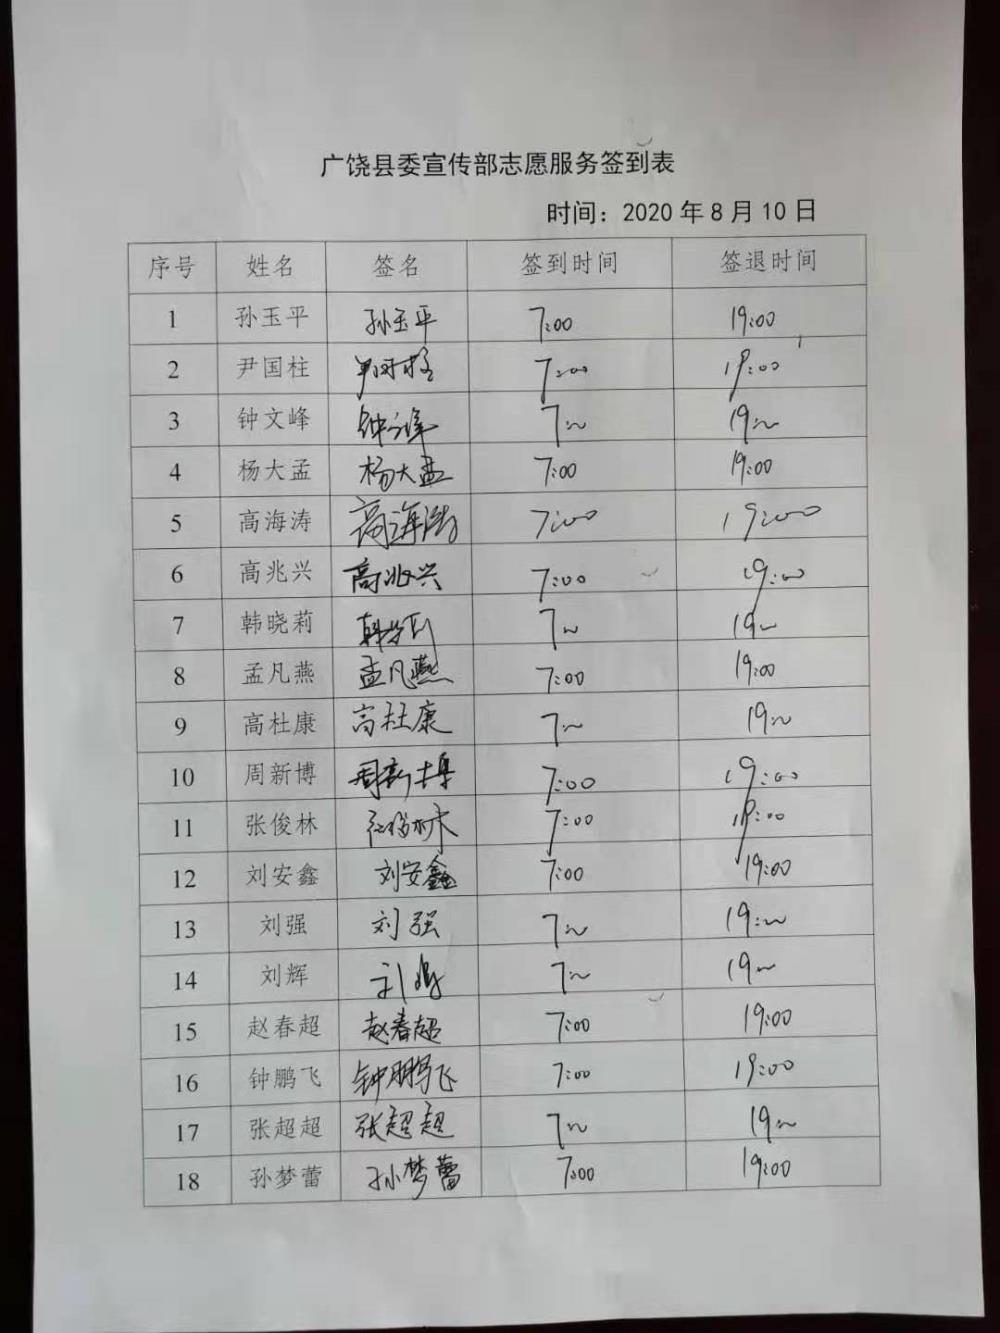 广饶县委宣传部志愿服务签到表
时间：2020年8月10日
序号 姓名 签名 签到时间 签退时间
1 孙玉平 孙玉平 7:00 19:00
2 尹国柱 尹国柱 7:00 19:00
3 钟文峰 钟文峰 7:00 19:00
4 杨大孟 杨大孟 7:00 19:00
5 高海涛 高海涛 7:00 19:00
6 高兆兴 高兆兴 7:00 19:00
7 韩晓莉 韩晓莉 7:00 19:00
8 孟凡燕 孟凡燕 7:00 19:00
9 高杜康 高杜康 7:00 19:00
10 周新博 周新博 7:00 19:00
11 张俊林 张俊林 7:00 19:00
12 刘安鑫 刘安鑫 7:00 19:00
13 刘强 刘强 7:00 19:00
14 刘辉 刘辉 7:00 19:00
15 赵春超 赵春超 7:00 19:00
16 钟鹏飞 钟鹏飞 7:00 19:00
17 张超超 张超超 7:00 19:00
18 孙梦蕾 孙梦蕾 7:00 19:00